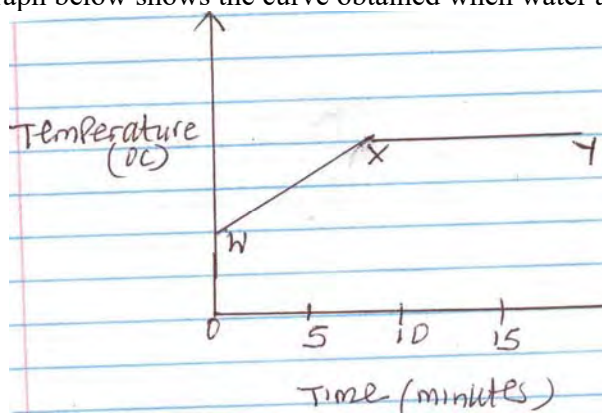 aph below shows the curve obtained when water
Temperature
(0C)
X
Y
W
0 5 10 15
Time (minutes)